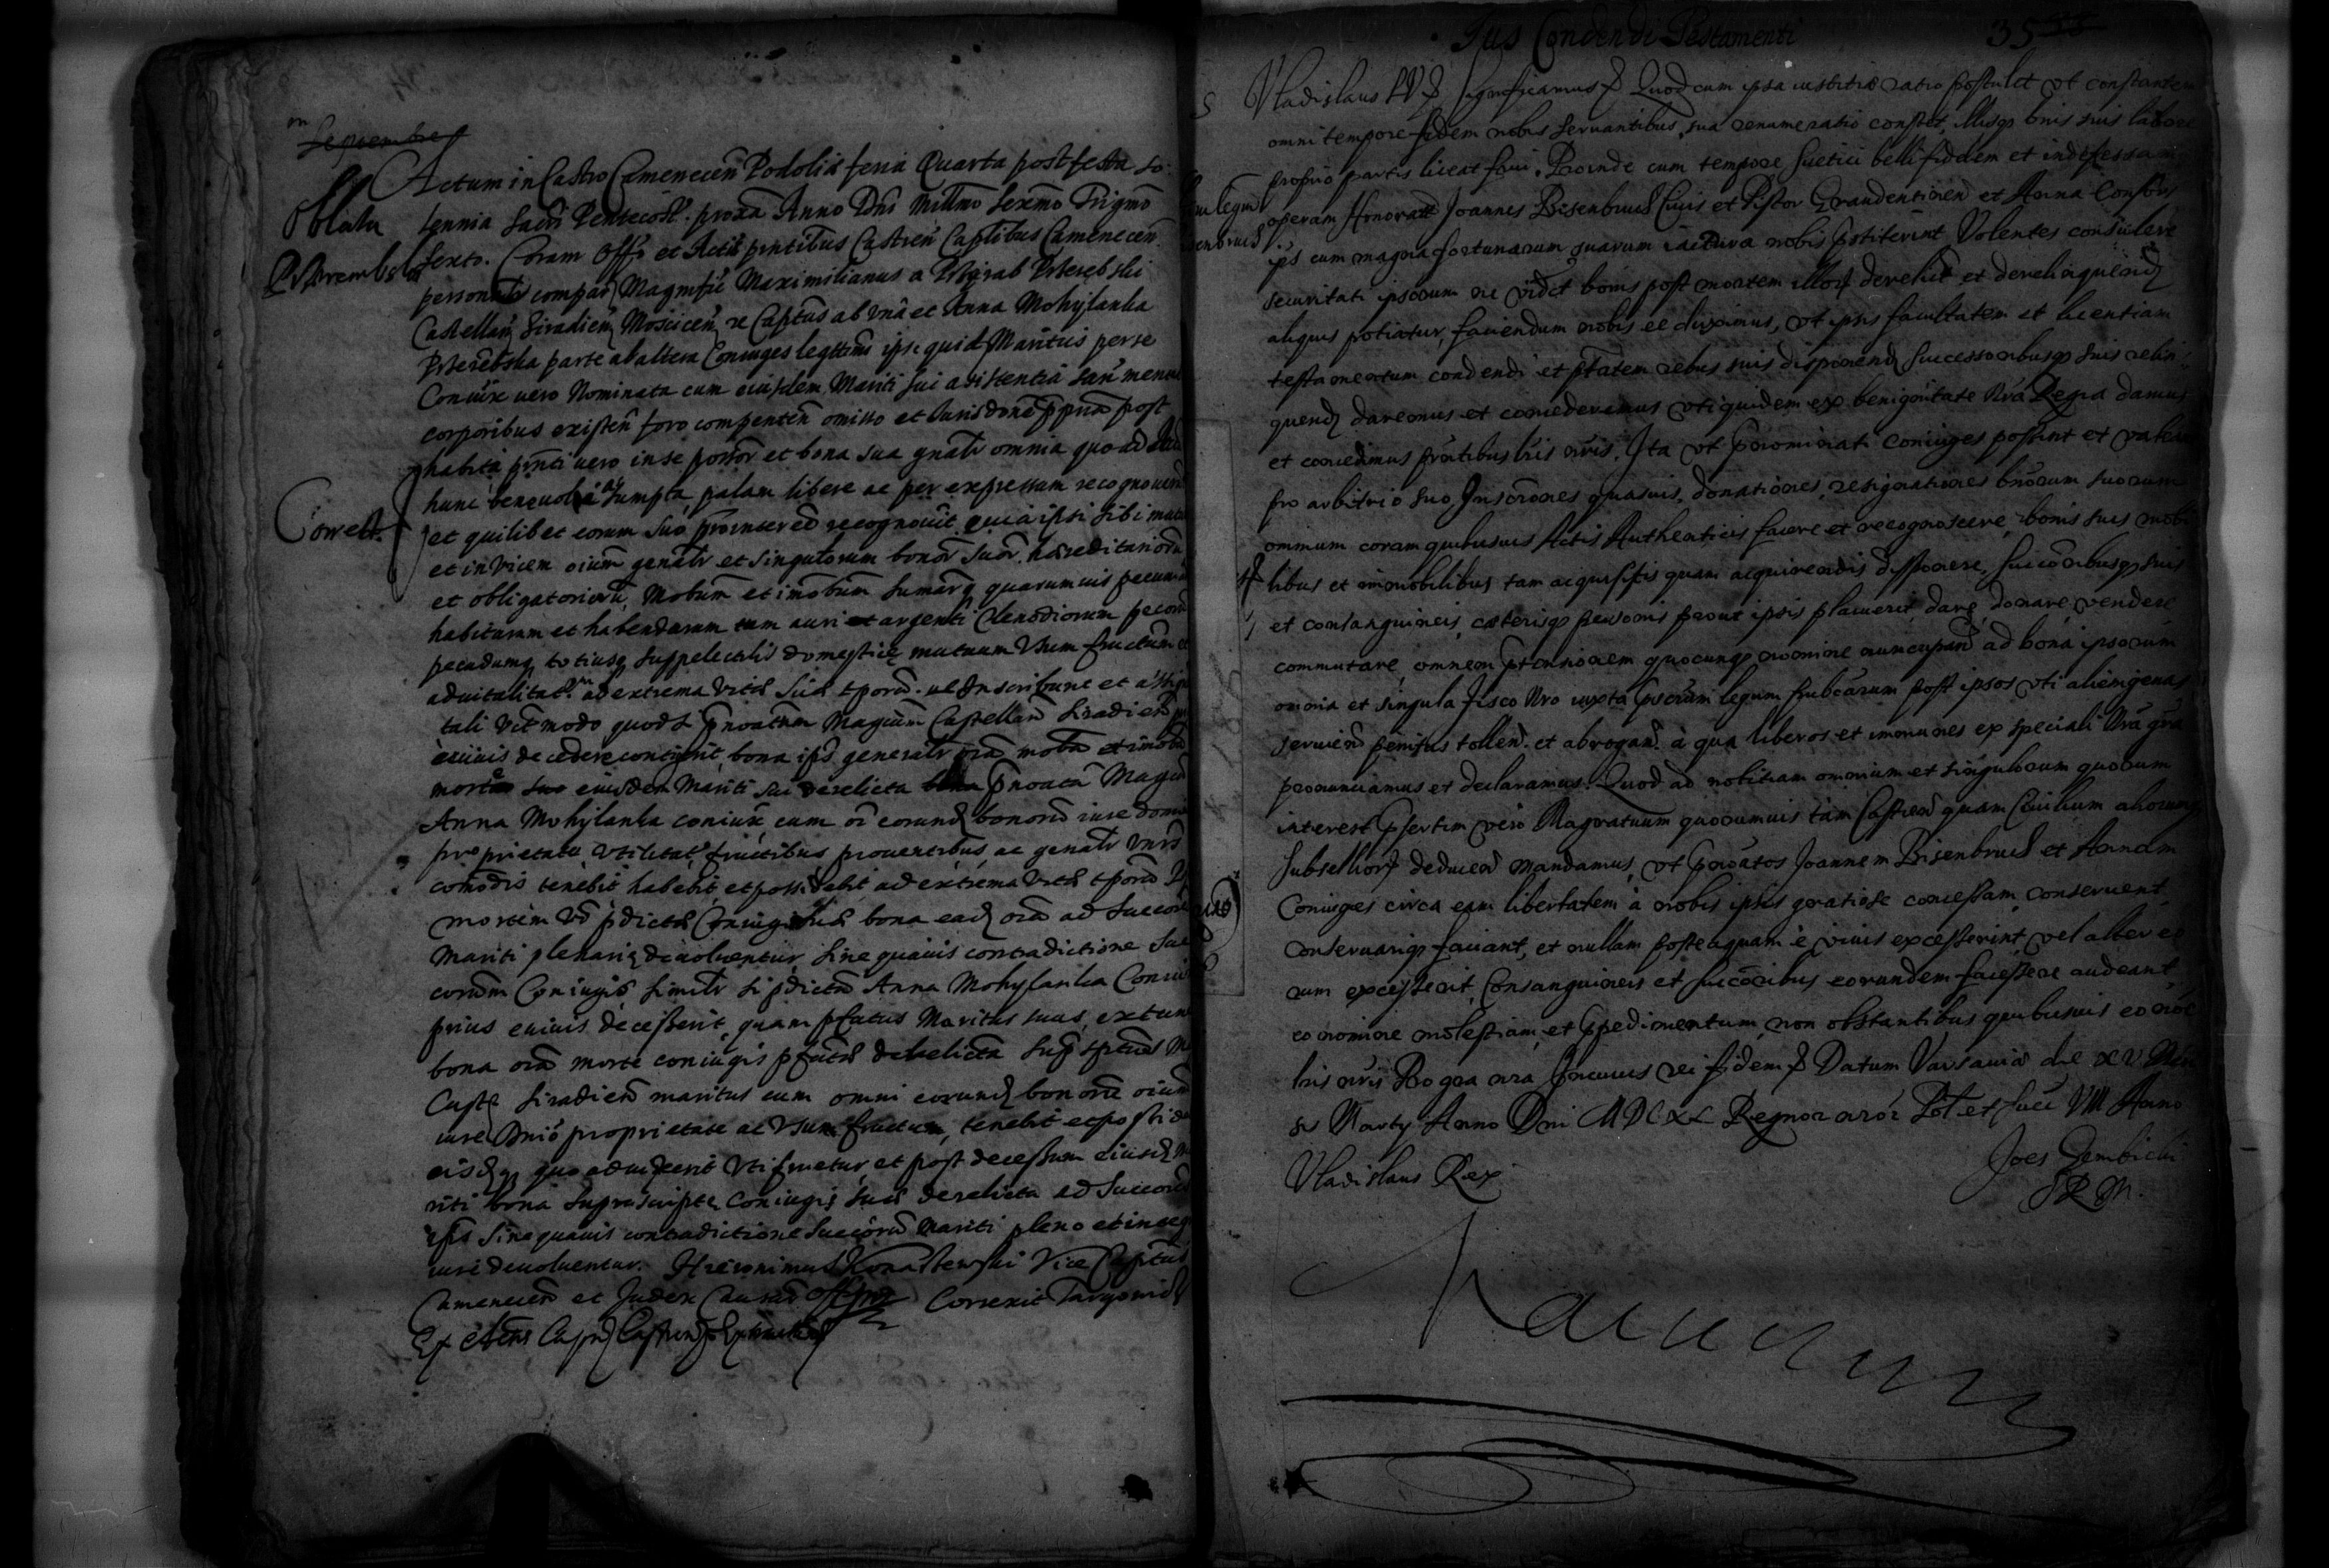 Septembris
Oblata
Correct.
Actum in Castro Camenecen Podoliae feria Quarta post festa so-
lennia Sacri Pentecost. proxa Anno Dni Millmo Sexmo Trigmo
sexto. Coram Offo et Actis pntibus Castren Captlibus Camenecen
personalr compar Magnific Maximilianus a Przerąb Przerebski
Castellan Siradien Moscicen ze Captus ab vna et Anna Mohylanka
Przerebska parte ab altera Coniuges legttimi ipse quid Maritus per se
Coniux uero Nominata cum eiusdem Mariti sui asistentia sani mente
corporibus existen foro competen omisso et Iurisdone ppria post
habita pnti uero in se ponor et bona sua gnalr omnia quo ad
hunc beneuole assumpta, palam libere ac per expressum recognouerunt
et quilibet eorum suo prointeresse recognouit quia ipsi sibi mutuo
et inuicem oium genalr et singulorum bonor suor. haereditarioru
et obligatorioru, Mobium et imobium sumarq quarumuis pecunia
habitarum et habendarum tam auri et argenti Clenodiorum pecoru
pecudumq totiusq suppelectilis domesticae mutuum Vsum fructum et
aduitalitat. ad extrema vitae suae tpora. ue Inscribunt et
tali vt modo quod si pnoatum Magcum Castellan Siradien
euiuis decedere contigerit, bona ips generalr oia moba et imoba
morte eiusdem Mariti sui derelicta pnoata Magca
Anna Mohylanka coniux cum oi eorund bonoru iure domi
proprietate vtilitat. fructibus prouentibus ac genalr vnis
comodis tenebit habebit et possidebit ad extrema vitae tpora
mortem vo pdictae Coniugis bona ead oia ad Succores
Mariti plenarie deuoluentur sine quauis contradictione Suc
corum Coniugis similr si pdicta Anna Mohylanka Coniux
prius euiuis decesserit quam pfatus Maritus suus, extunc
bona oia morte coniugis pfatae derelicta
Castel Siradien maritus cum omni eorund bonoru oium
iure Dnio proprietate ac Vsum fructum, tenebit et possidebit
eisdq quo aduixerit vti fruetur et post decessum eiusd Ma
riti bona suprascriptae Coniugis suae derelicta ad Succores
ipsis sine quauis contradictione Succorum Mariti pleno et integro
iure deuoluentur. Hieronimus Vice Captus
Camenecen et Judex Causar Correxit
Ex Actis
Jus Condendi Testamenti 35
Vladislaus IV Significamus Quod cum ipsa iustitiae ratio postulet vt constantem
omni tempore fidem nobis seruantibus, sua renumeratio constet, illisqe bnis suis labore
proprio partis liceat frui. Proinde cum tempore Suetici belli fidelem et indefessam
operam Honorati Joannes Bisenbruch Ciuis et Pistor Graudentinen et Anna Consors
ips cum magna fortunarum suarum iactura nobis pstiterint Volentes consulere
securitati ipsorum ne videt bonis post mortem illor derelict. et derelinquend
aliquis potiatur, faciendum nobis ee duximus, vt ipsis facultatem et licentiam
testamentum condendi et ptatem rebus suis disponend Successoribusqe suis relin-
quend daremus et concederemus vti quidem ex benignitate Nra Regia damus
et concedimus pntibus lris nris. Ita vt pnominati coniuges possint et valeant
pro arbitrio suo Inscriones quasuis, donationes, resignationes bnorum suorum
omnium coram quibusuis Actis Authenticis facere et recognoscere, bonis suis mobi
libus et immobilibus tam acquisitis quam acquirendis disponere, succoribusqe suis
et consanguineis, caeterisqe personis prout ipsis placuerit, dare, donare, vendere
commutare, omnem ptensionem quocunqe nomine nuncupand ad bona ipsorum
omnia et singula Fisco Nro iuxta pscriptum legum publicarum post ipsos vti alienigenas
seruien penitus tollend. et abrogand. à qua liberos et immunes ex speciali Nra gra
pronunciamus et declaramus. Quod ad notitiam omnium et singulorum quorum
interest psertim vero Magratuum quorumuis tam Castren quam Ciuilium aliorumq
Subsellior deducen mandamus, vt pnoatos Joannem Bisenbruch et Annam
Coniuges circa eam libertatem à nobis ipsis gratiose concessam conseruent
conseruariqe faciant, et nullam posteaquam è viuis excesserint, vel alter eo
rum excesserit, Consanguineis et succoribus eorundem facessere audeant
eo nomine molestiam et impedimentum, non obstantibus quibusuis eo noie
lris nris Pro gra nra In cuius rei fidem Datum Varsauiae die XV Men
sis Marty Anno Dni MDCXL Regnor nror Pol. et Suec VIII Anno
Vladislaus Rex
Joes Gembicki
S R M.